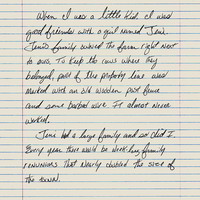 When I was a little kid I was
good friends with a girl named Jeni.
Jeni's family owned the farm right next
to ours. To keep the cows where they
belonged, part of the property line was
marked with an old wooden post fence
and some barbed wire. It almost never
worked.
Jeni had a large family and so did I.
Every year there would be week-long family
reunions that nearly doubled the size of
the town.